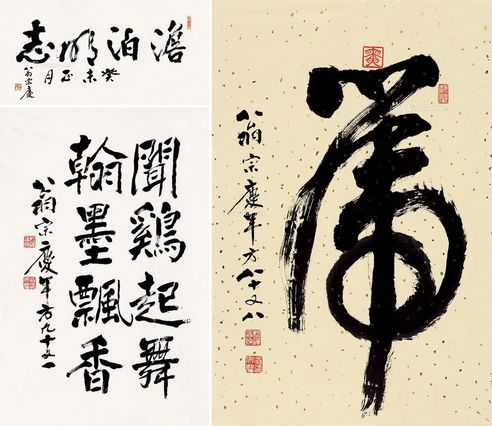 澹泊明志
癸未正月
翁宗慶
聞鷄起舞
翰墨飄香
翁宗慶年方九十又一
虎
翁宗慶年方八十又八